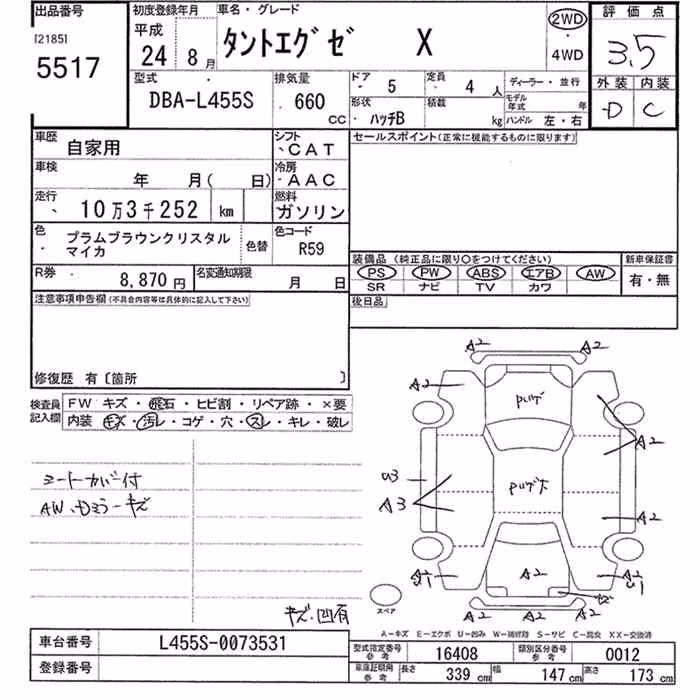 出品番号
[2185]
5517
初度登録年月
平成
24 8月
車名・グレード
タントエグゼ X
2WD
・
4WD
評価点
3.5
外装 内装
D C
型式
DBA-L455S
排気量
660 CC
ドア 5
定員 4 人
形状 ハッチB
積載 kg
ディーラー・並行
モデル年式 年
ハンドル 左・右
車歴 自家用
シフト CAT
車検 年 月( 日)
冷房 AAC
走行 10万3千252 km
燃料 ガソリン
色 プラムブラウンクリスタル
マイカ
色替
色コード R59
R券 8,870円
名変通知期限 月 日
セールスポイント(正常に機能するものに限ります)
装備品(純正品に限り○をつけてください)
PS PW ABS エアB AW
SR ナビ TV カワ
新車保証書
有・無
後日品
注意事項申告欄(不具合内容等は具体的に記入して下さい)
修復歴 有〔箇所 〕
検査員記入欄
FW キズ・飛石・ヒビ割・リペア跡・×要
内装 キズ・汚レ・コゲ・穴・スレ・キレ・破レ
シートカバー付
AW、Dミラーキズ
キズ、凹有
A2 A2
A2
A2
U3
A3
A2
A2
A2
A2
A2 A2
スペア
A-キズ E-エクボ U-凹み W-補修跡 S-サビ C-腐食 XX-交換済
車台番号 L455S-0073531
登録番号
型式指定番号 参考 16408
類別区分番号 参考 0012
車庫証明用 参考 長さ 339 cm 幅 147 cm 高さ 173 cm